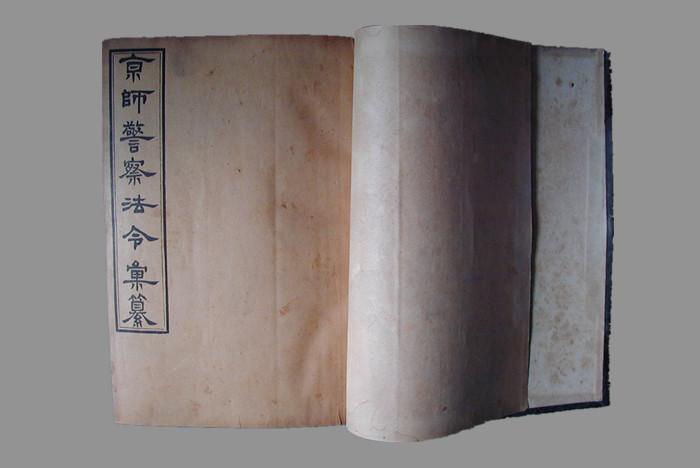 京師警察法令彙纂